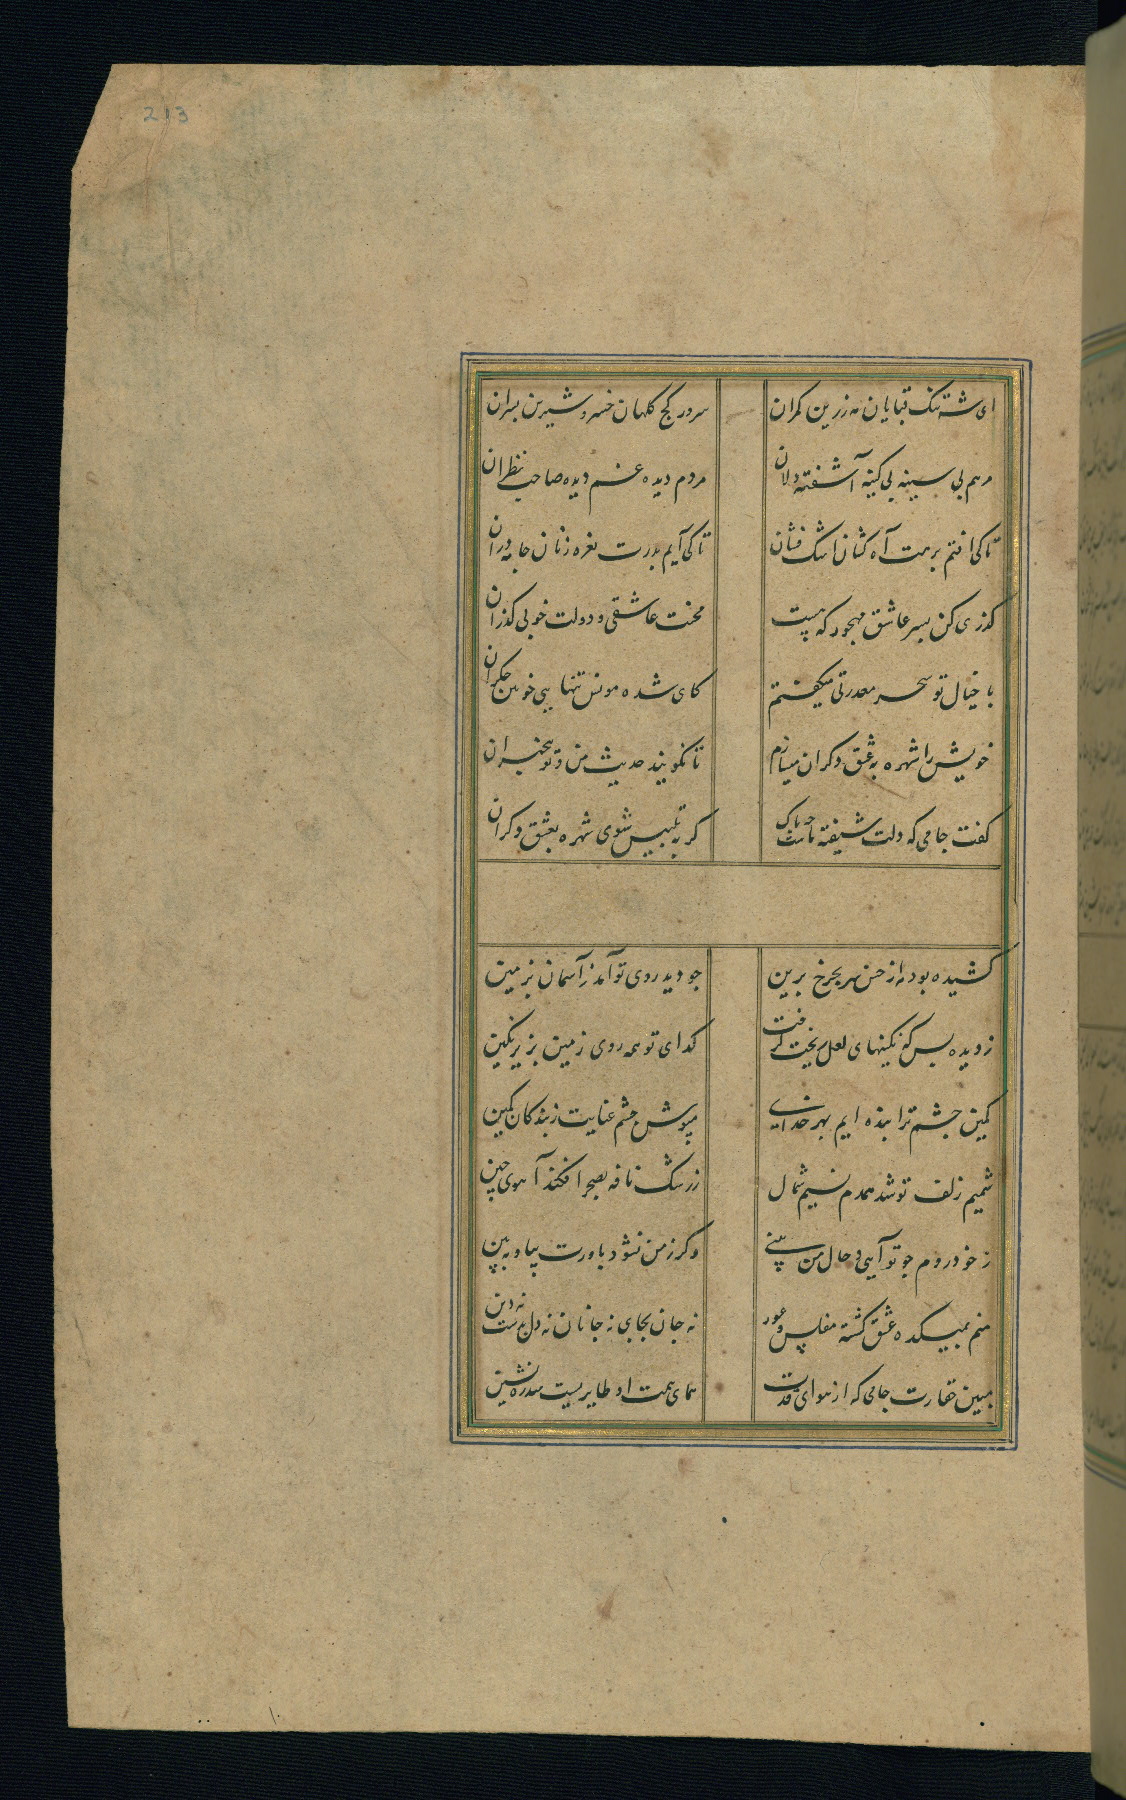 213
ای شه تنگ قبایان مه زرین کمران
سرور کج کلهان خسرو شیرین پسران
مرهم بی سینه بی کینه آشفته دلان
مردم دیده غم دیده صاحب نظران
تا کی افتم برهت آه کشان اشک فشان
تا کی آیم بدرت نعره زنان جامه دران
گذری کن بسر عاشق مهجور که هست
محنت عاشقی و دولت خوبی گذران
با خیال تو سحر معذرتی میگفتم
کای شده مونس تنهایی خونین جگران
خویش را شهره به عشق دگران میسازم
تا نگویند حدیث من و تو بیخبران
گفت جامی که دلت شیفته ماست چه باک
گر به تلبیس شوی شهره بعشق دگران
کشیده بود مه از حسن سر بچرخ برین
چو دید روی تو آمد ز آسمان بزمین
ز دیده بس که نگینهای لعل ریخت گرفت
گدای تو همه روی زمین بزیر نگین
کمین چشم ترا بنده ایم بهر خدای
مپوش چشم عنایت ز بندگان کمین
شمیم زلف تو شد همدم نسیم شمال
ز رشک نافه بصحرا فکند آهوی چین
ز خود روم چو تو آیی و حال من بینی
وگر ز من نشود باورت بیا و به بین
منم بمیکده عشق گشته مفلس و عور
نه جان بجای نه جانان نه دل بدست نه دین
مبین حقارت جامی که از هوای قدت
همای همت او طایریست سدره نشین